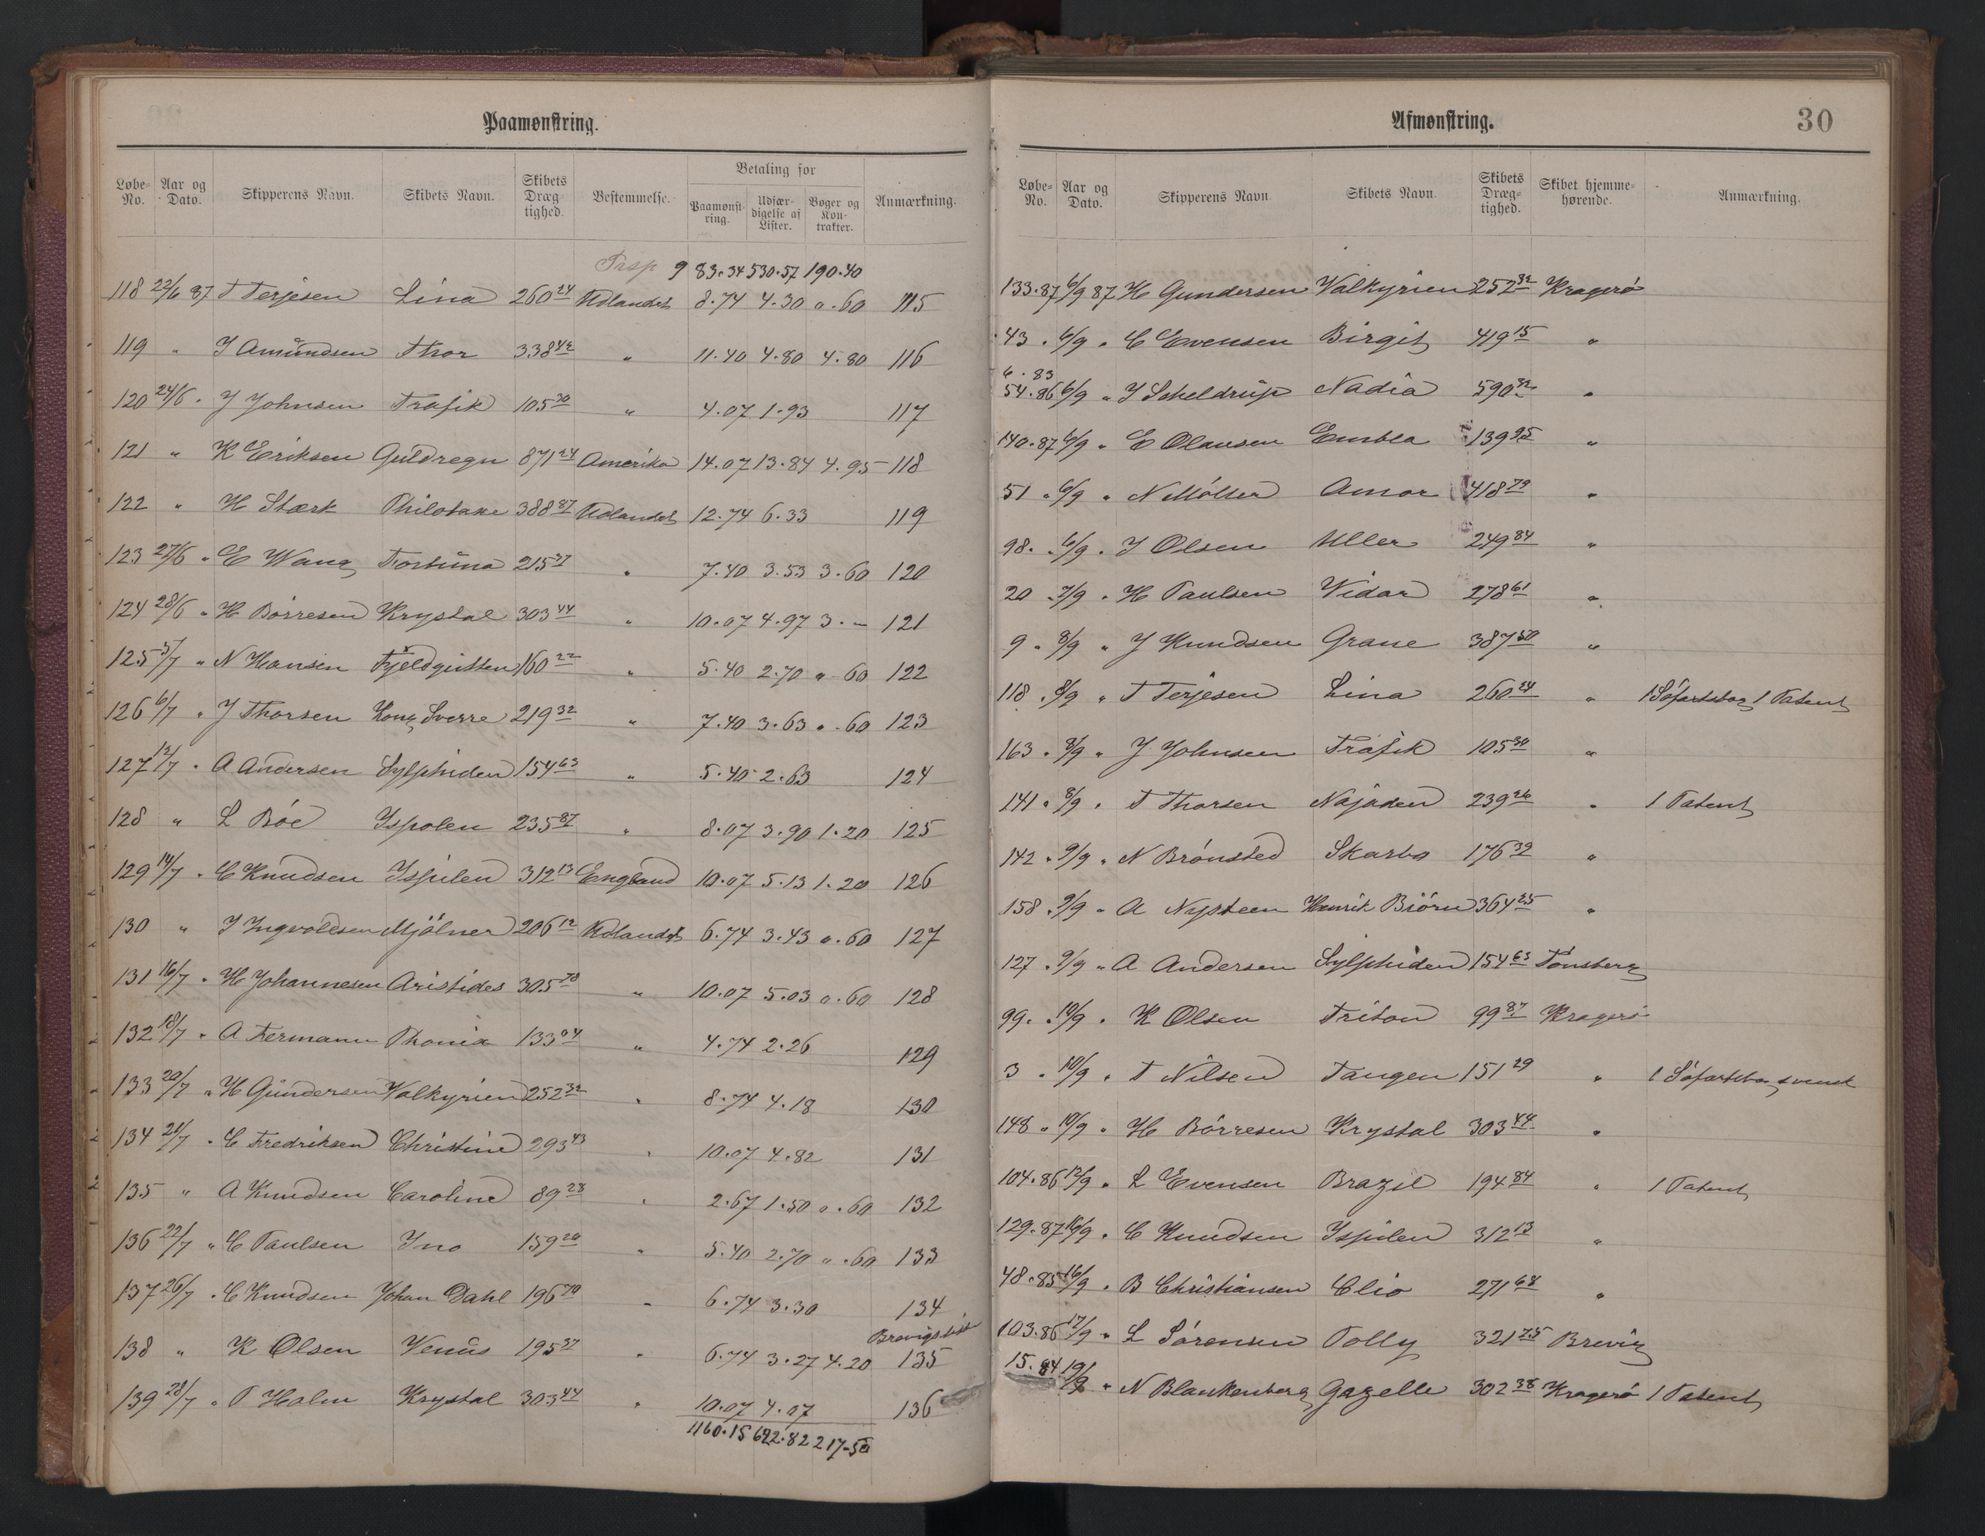 Paamønstring.
Løbe-No. Aar og Dato. Skipperens Navn. Skibets Navn. Skibets Dræg-tighed. Bestemmelse. Betaling for Paamønst-ring. Udfær-digelse af Lister. Bøger og Kon-trakter. Anmærkning.
Trsp 983.34 530.57 190.40
118 22/6 87 T Terjesen Lina 260 24 Udlandet 8.74 4.30 " .60 115
119 " J Amundsen Thor 338 42 " 11.40 4.80 4.80 116
120 24/6 " J Johnsen Trafik 105 30 " 4.07 1.93 117
121 " K Eriksen Guldregn 871 24 Amerika 14.07 13.84 4.95 118
122 " H Stærk Philotaxe 388 87 Udlandet 12.74 6.33 119
123 27/6 " E Wang Fortuna 215 37 " 7.40 3.53 3.60 120
124 28/6 " H Börresen Krystal 303 44 " 10.07 4.97 3.- 121
125 5/7 " N Hansen Fjeldgutten 160 22 " 5.40 2.70 " .60 122
126 6/7 " J Thorsen Kong Sverre 219 32 " 7.40 3.63 " .60 123
127 12/7 " A Andersen Sylphiden 154 63 " 5.40 2.63 124
128 " L Böe Ispolen 235 87 " 8.07 3.90 1.20 125
129 14/7 " C Knudsen Ispilen 312 13 England 10.07 5.13 1.20 126
130 " J Ingvoldsen Mjölner 206 12 Udlandet 6.74 3.43 " .60 127
131 16/7 " H Johannesen Aristides 305 78 " 10.07 5.03 " .60 128
132 18/7 " A Fermann Phönix 133 04 " 4.74 2.26 129
133 20/7 " H Gundersen Valkyrien 252 32 " 8.74 4.18 130
134 21/7 " C Fredriksen Christine 293 43 " 10.07 4.82 131
135 " A Knudsen Caroline 89 28 " 2.67 1.50 " .60 132
136 22/7 " C Paulsen Ino 159 20 " 5.40 2.70 " .60 133
137 26/7 " C Knudsen Johan Dahl 196 70 " 6.74 3.30 134
138 " K Olsen Venus 195 37 " 6.74 3.27 4.20 Brevigslist 135
139 28/7 " P Holm Krystal 303 44 " 10.07 4.07 136
1160.15 622.82 217.50
Afmønstring. 30
Løbe-No. Aar og Dato. Skipperens Navn Skibets Navn. Skibets Dræg-tighed. Skibet hjemme-hørende. Anmærkning.
133.87 6/9 87 H Gundersen Valkyrien 252 32 Kragerö
43 " 6/9 " C Evensen Birgit 419 15 "
6.83
54.86 6/9 " J Scheldrup Nadia 590 32 "
140.87 6/9 " E Olausen Embla 139 95 "
51 " 6/9 " N Möller Amor 418 79 "
98 " 6/9 " J Olsen Uller 249 84 "
20 " 7/9 " H Paulsen Vidar 278 61 "
9 " 8/9 " J Knudsen Grane 387 50 "
118 " 8/9 " T Terjesen Lina 260 24 " 1 Söfartsbog 1 Patent
163 " 8/9 " J Johnsen Trafik 105 30 "
141 " 8/9 " T Thorsen Najaden 239 26 " 1 Patent
142 " 9/9 " N Brönsted Skarbo 176 39 "
158 " 9/9 " A Nysteen Henrik Björn 364 25 "
127 " 9/9 " A Andersen Sylphiden 154 63 Tönsberg
99 " 10/9 " K Olsen Triton 99 87 Kragerö
3 " 10/9 " T Nilsen Tangen 151 29 " 1 Söfartsbog svensk
148 " 10/9 " H Börresen Krystal 303 44 "
104.86 12/9 " L Evensen Brazil 194 84 " 1 Patent
129.87 16/9 " C Knudsen Ispilen 312 13 "
48.85 16/9 " B Christiansen Clio 271 68 "
103.86 17/9 " L Sörensen Polly 321 75 Brevig
15.84 19/9 " N Blankenberg Gazelle 302 38 Kragerö 1 Patent